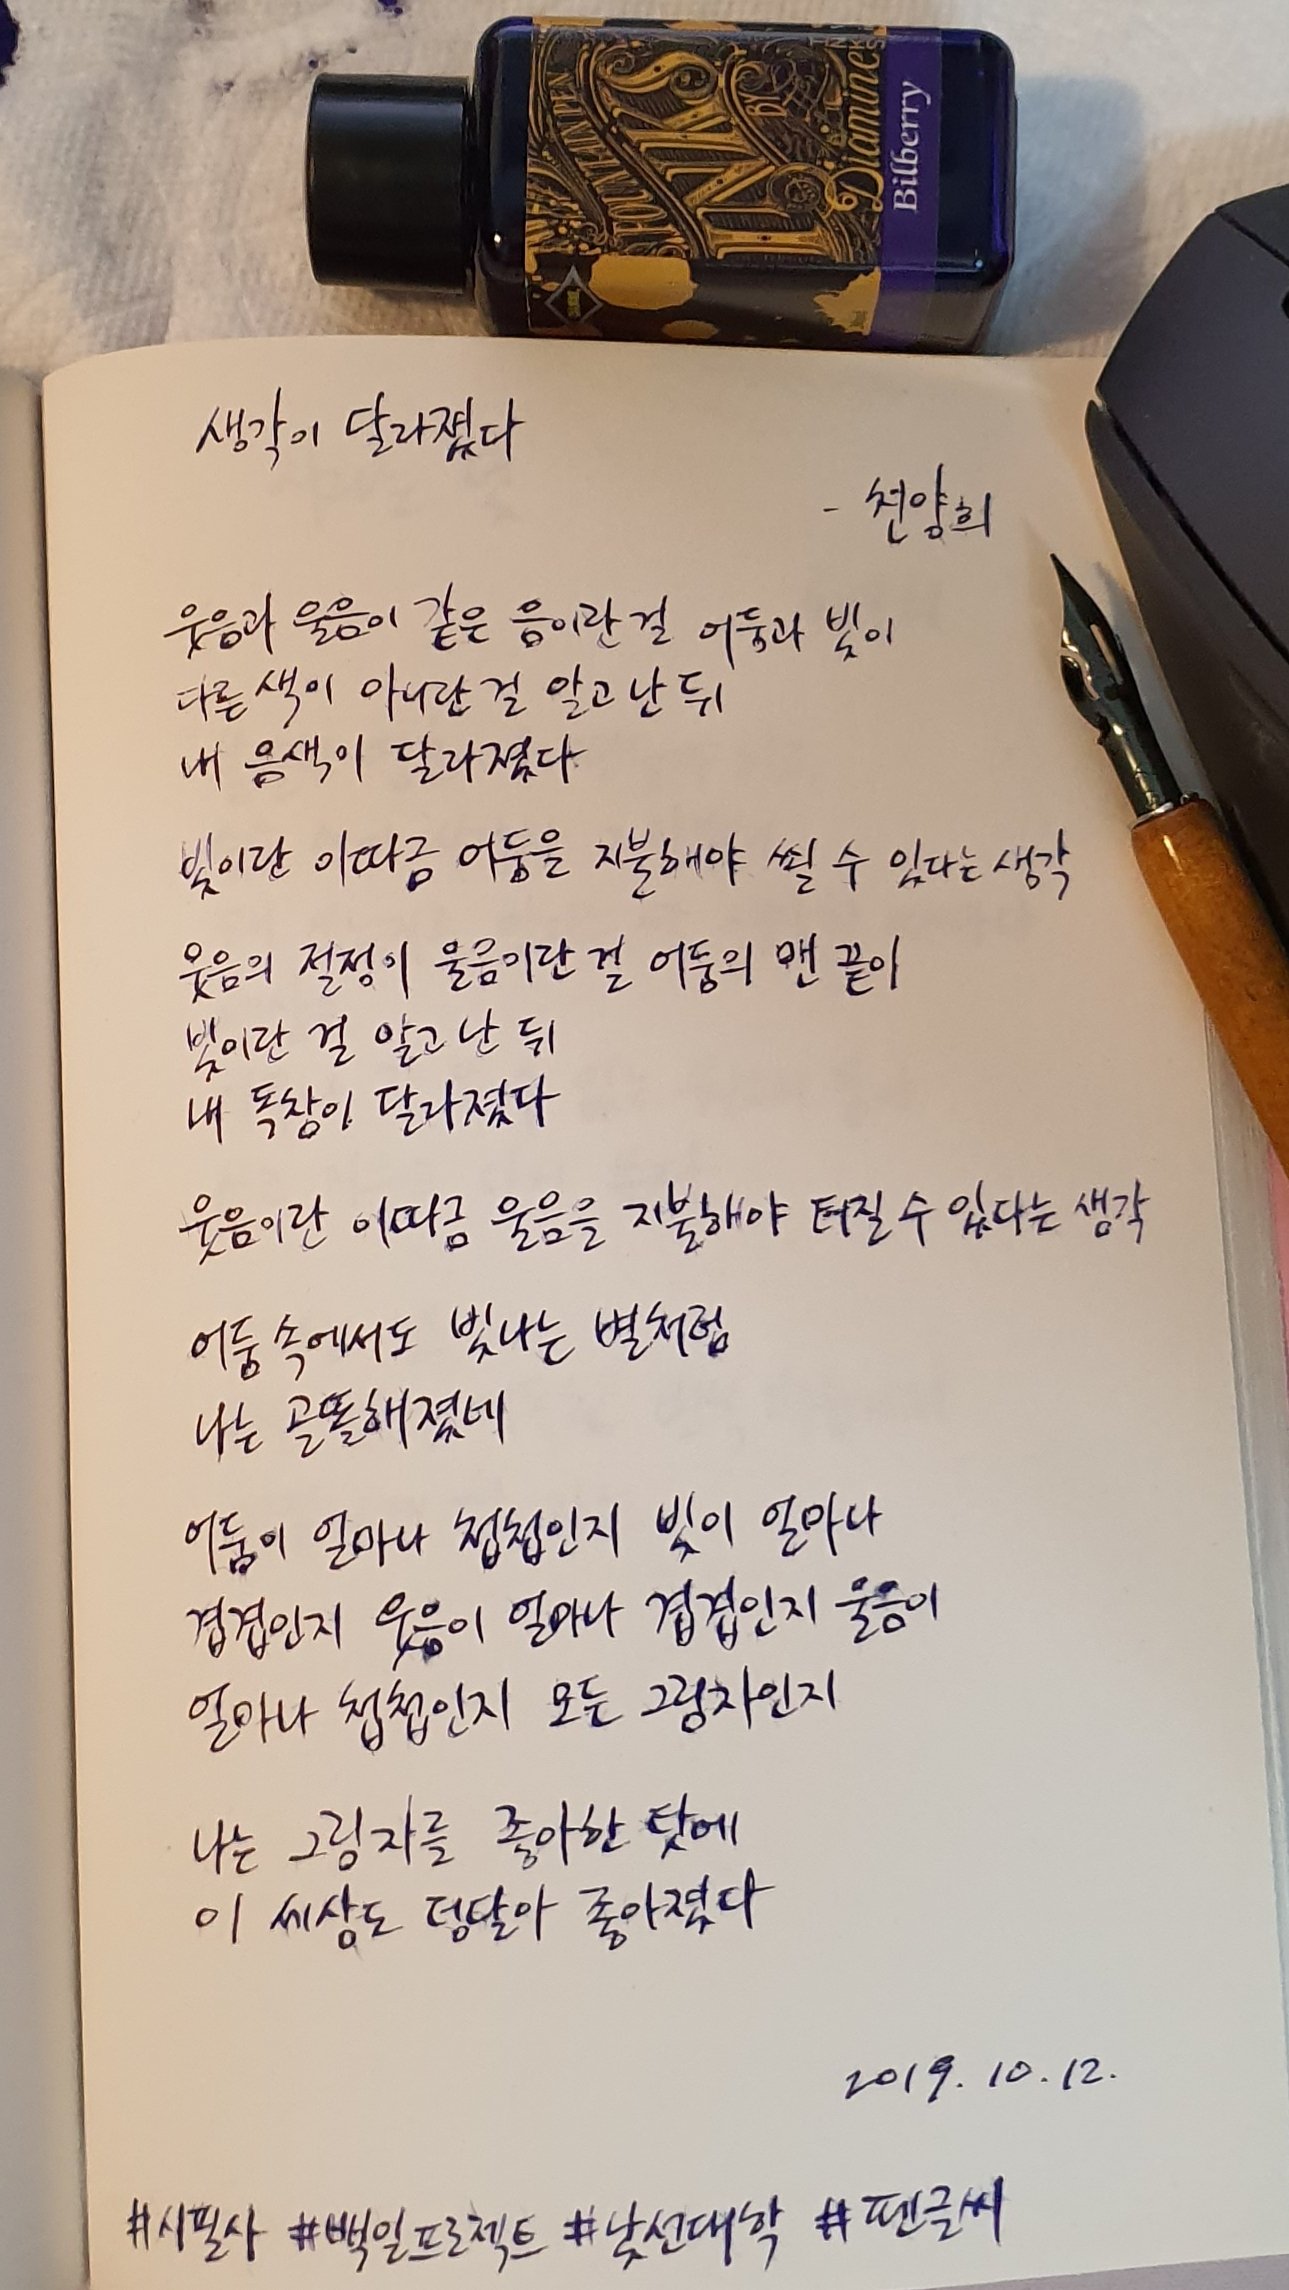 INKS
BY
Diamine
Bilberry
생각이 달라졌다
- 천양희
웃음과 울음이 같은 음이란 걸 어둠과 빛이
다른 색이 아니란 걸 알고 난 뒤
내 음색이 달라졌다
빛이란 이따금 어둠을 지불해야 쐴 수 있다는 생각
웃음의 절정이 울음이란 걸 어둠의 맨 끝이
빛이란 걸 알고 난 뒤
내 독창이 달라졌다
웃음이란 이따금 울음을 지불해야 터질 수 있다는 생각
어둠 속에서도 빛나는 별처럼
나는 골똘해졌네
어둠이 얼마나 첩첩인지 빛이 얼마나
겹겹인지 웃음이 얼마나 겹겹인지 울음이
얼마나 첩첩인지 모든 그림자인지
나는 그림자를 좋아한 탓에
이 세상도 덩달아 좋아졌다
2019. 10. 12.
#시필사 #백일프로젝트 #낯선대학 #펜글씨